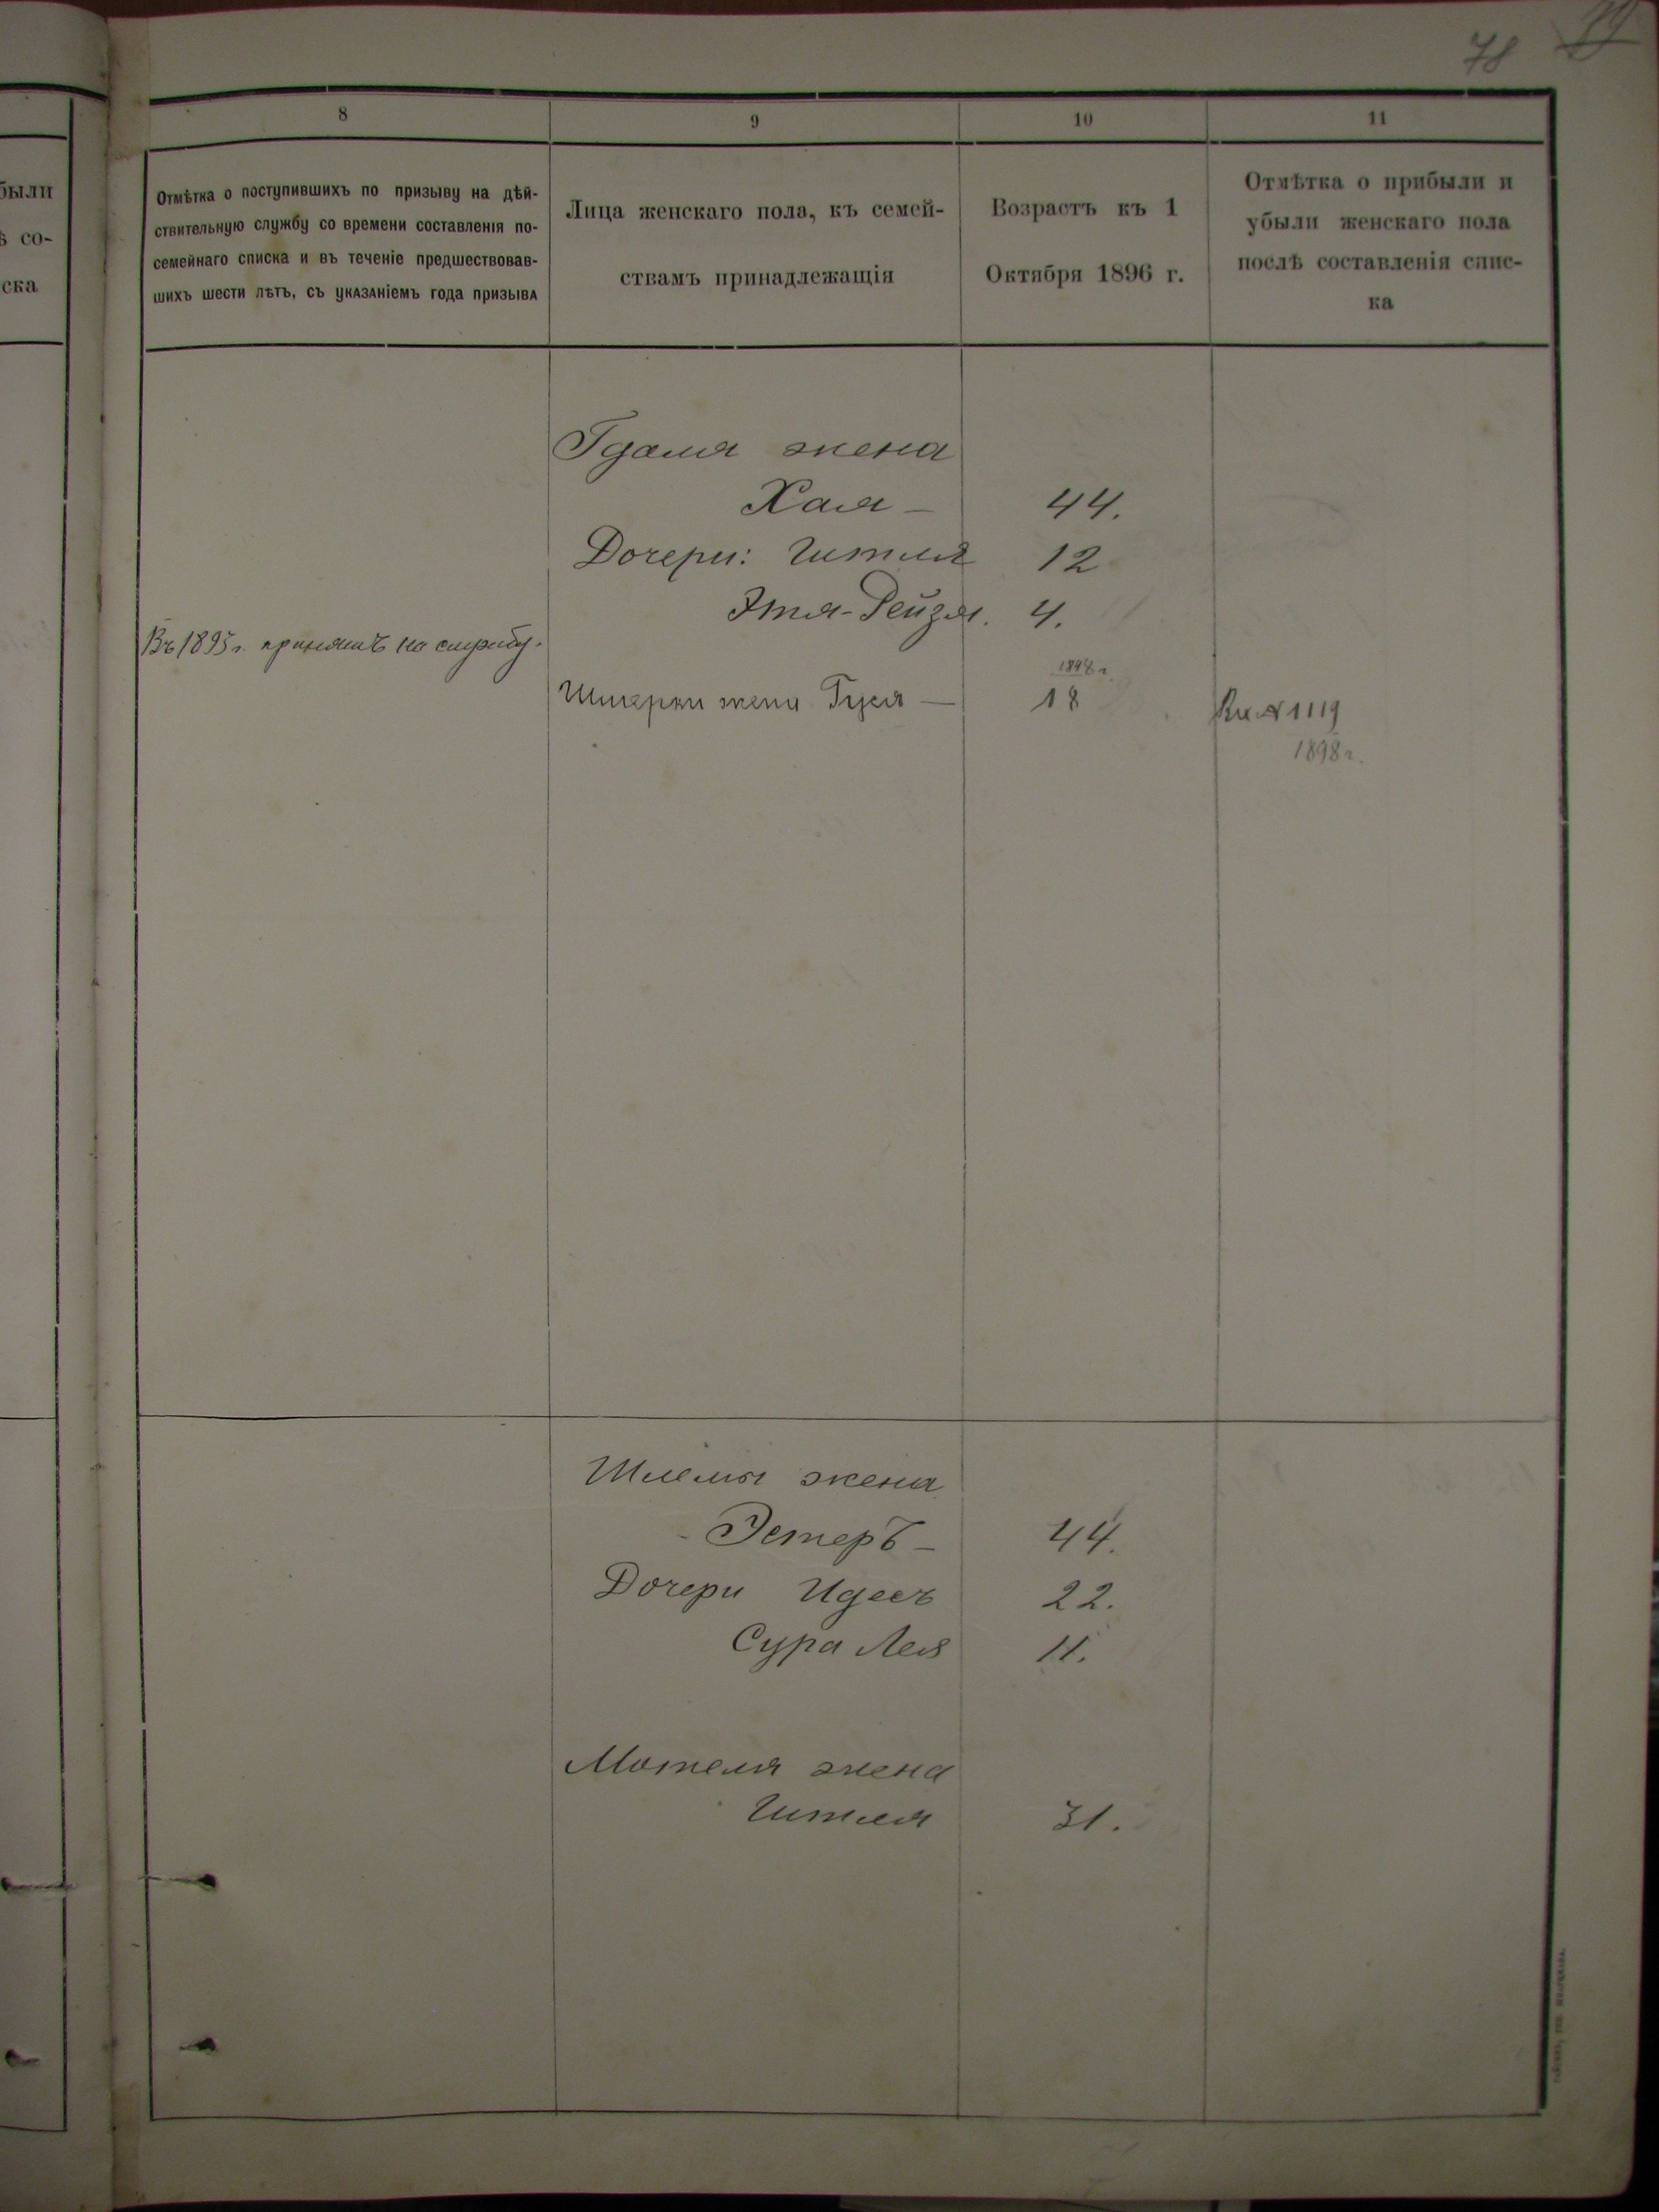 78
были
ъ со-
ска
8
9
10
11
Отмѣтка о поступившихъ по призыву на дѣй-
ствительную службу со времени составленія по-
семейнаго списка и въ теченіе предшествовав-
шихъ шести лѣтъ, съ указаніемъ года призыва
Лица женскаго пола, къ семей-
ствамъ принадлежащія
Возрастъ къ 1
Октября 1896 г.
Отмѣтка о прибыли и
убыли женскаго пола
послѣ составленія спис-
ка
Гдаля жена
Хая — 44.
Дочери: Гитля 12
Этя-Рейзя. 4.
Въ 1895 г. принятъ на службу.
1898 г.
жена — 18
№ 1119
1898 г.
Шлемы жена
Эстеръ — 44.
Дочери Идесъ 22.
Сура Лея 11.
Мотеля жена
Гитля 31.